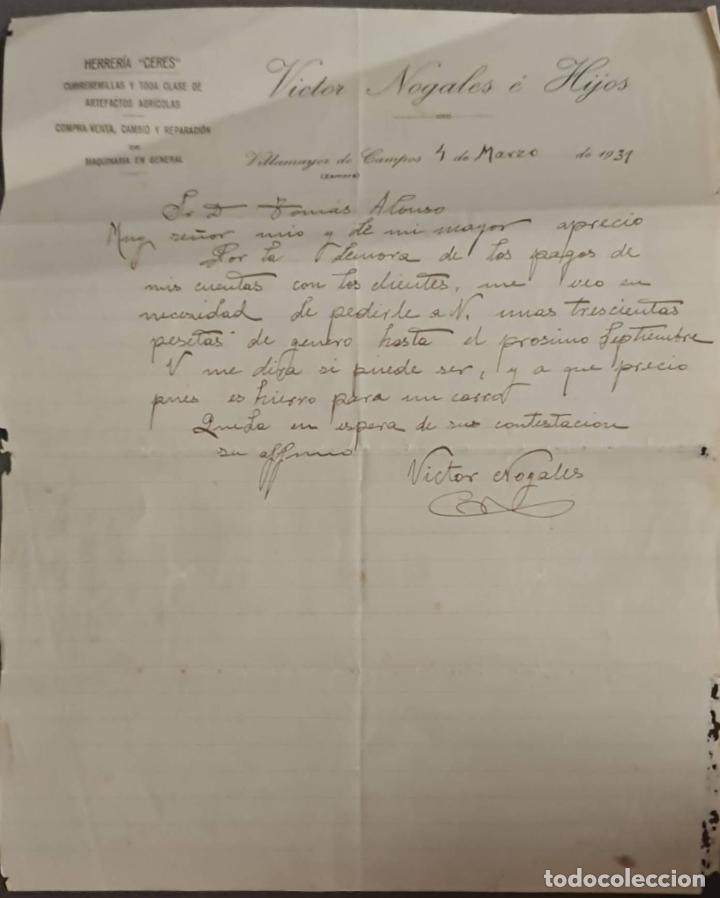 HERRERÍA "CERES"
CUBRESEMILLAS Y TODA CLASE DE
ARTEFACTOS AGRÍCOLAS
COMPRA-VENTA, CAMBIO Y REPARACIÓN
DE
MAQUINARIA EN GENERAL
Victor Nogales é Hijos
Villamayor de Campos 4 de Marzo de 1931
(ZAMORA)
Sr D Tomás Alonso
Muy señor mio y de mi mayor aprecio
Por la demora de los pagos de
mis cuentas con los clientes, me veo en
necesidad de pedirle a V. unas trescientas
pesetas de genero hasta el prosimo Septiembre
V me dira si puede ser, y a que precio
pues es hierro para un carro
Queda en espera de sus contestacion
su affmo
Victor Nogales
todocoleccion.net